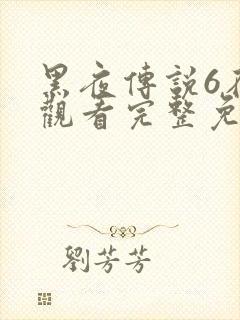 黑夜傳説6
觀看完整免
劉芳芳